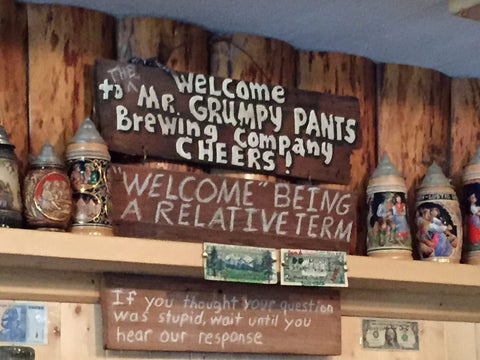 Welcome
to THE Mr. GRUMPY PANTS
Brewing Company
CHEERS!
"WELCOME" BEING
A RELATIVE TERM
If you thought your question
was stupid, wait until you
hear our response